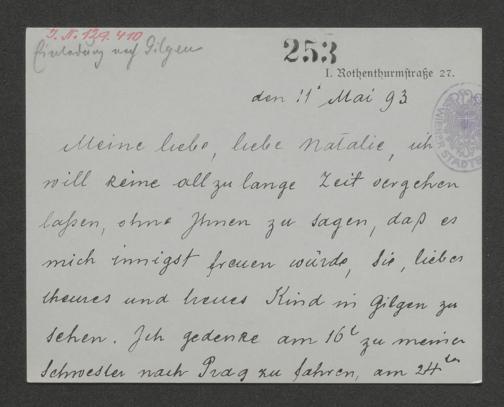 I. N. 129.410
Einladung nach Gilgen
253
I. Rothenthurmstraße 27.
den 11t Mai 93
Meine liebe, liebe Natalie, ich
will keine allzu lange Zeit vergehen
laßen, ohne Ihnen zu sagen, daß es
mich innigst freuen würde, Sie, liebes
theures und treues Kind in Gilgen zu
sehen. Ich gedenke am 16t zu meiner
Schwester nach Prag zu fahren, am 24ten